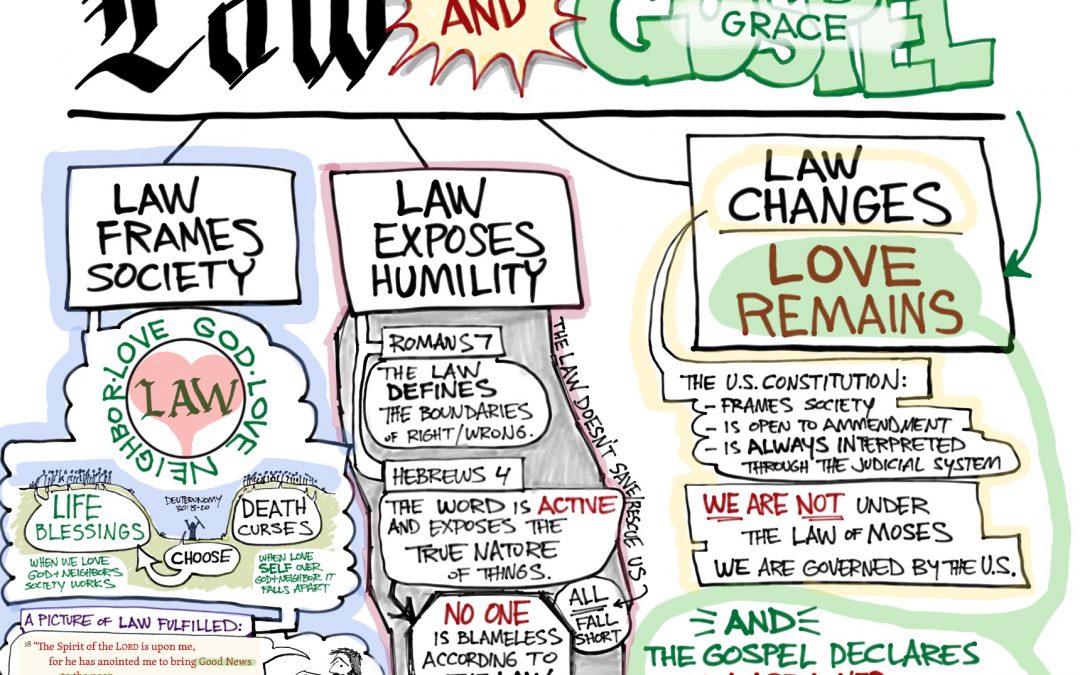 Law
AND
GOSPEL
GRACE
LAW
FRAMES
SOCIETY
LOVE GOD · LOVE NEIGHBOR ·
LAW
LIFE
BLESSINGS
DEUTERONOMY
30:15-20
DEATH
CURSES
CHOOSE
WHEN WE LOVE
GOD + NEIGHBORS
SOCIETY WORKS
WHEN LOVE
SELF OVER
GOD + NEIGHBOR IT
FALLS APART
A PICTURE OF LAW FULFILLED:
18 "The Spirit of the LORD is upon me,
for he has anointed me to bring Good News
LAW
EXPOSES
HUMILITY
ROMANS 7
THE LAW
DEFINES
THE BOUNDARIES
OF RIGHT/WRONG.
HEBREWS 4
THE WORD IS ACTIVE
AND EXPOSES THE
TRUE NATURE
OF THINGS.
THE LAW DOESN'T SAVE/RESCUE US
NO ONE
IS BLAMELESS
ACCORDING TO
THE LAW
ALL
FALL
SHORT
LAW
CHANGES
LOVE
REMAINS
THE U.S. CONSTITUTION:
- FRAMES SOCIETY
- IS OPEN TO AMMENDMENT
- IS ALWAYS INTERPRETED
THROUGH THE JUDICIAL SYSTEM
WE ARE NOT UNDER
THE LAW OF MOSES
WE ARE GOVERNED BY THE U.S.
AND
THE GOSPEL DECLARES